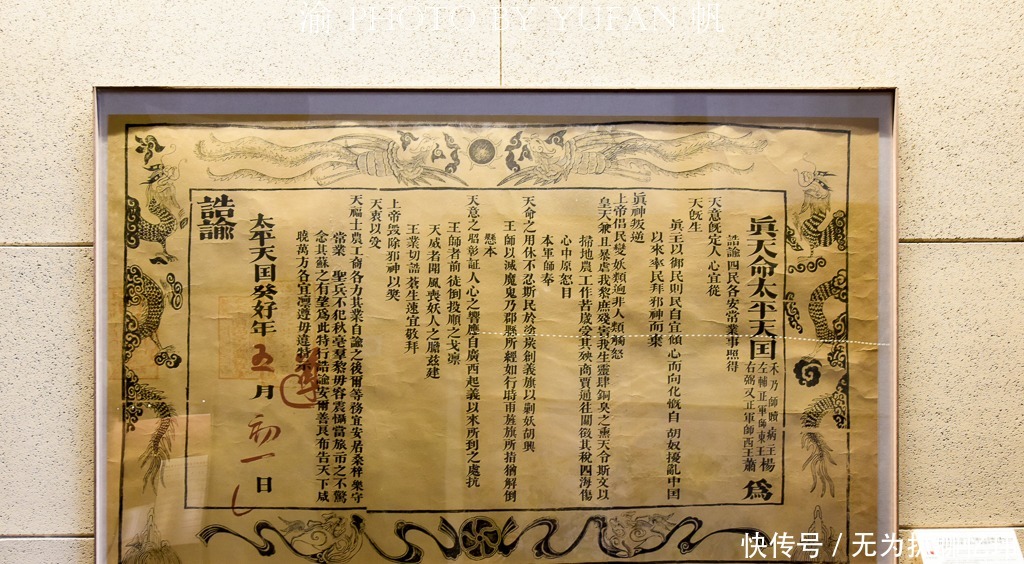 渝 PHOTO BY YUFAN 帆
眞天命太平天囯
禾乃師贖病主
左輔正軍師東王楊
右弼又正軍師西王蕭
爲
誥諭四民各安常業事照得
天意旣定人心宜從
天旣生
眞主以御民則民自宜傾心而向化慨自 胡奴擾亂中囯
以來率民拜邪神而棄
眞神叛逆
上帝倡民變妖類逈非人類觸怒
皇天兼且暴虐我黎庶殘害我生靈肆銅臭之熏天令斯文以
掃地農工作苦歲受其殃商賈通往關徵其稅四海傷
心中原怒目
本軍師奉
天命之用休不忍斯民於塗炭創義旗以剿妖胡興
王師以滅魔鬼乃郡縣所經如行時雨旌旗所指猶解倒
懸本
天意之昭彰証人心之響應自廣西起義以來所到之處抗
王師者前徒倒投順之戈凛
天威者聞風喪妖人之膽茲建
王業切誥蒼生速宜敬拜
上帝毀除邪神以奬
天衷以受
天福士農工商各力其業自諭之後爾等務宜安居桑梓樂守
常業 聖兵不犯秋毫羣黎毋容震懾當旅市之不驚
念其蘇之有望爲此特行誥諭安爾善良布告天下咸
曉萬方各宜凛遵毋違特示
遵
太平天囯癸好年五月初一日
誥諭
快传号 / 无为